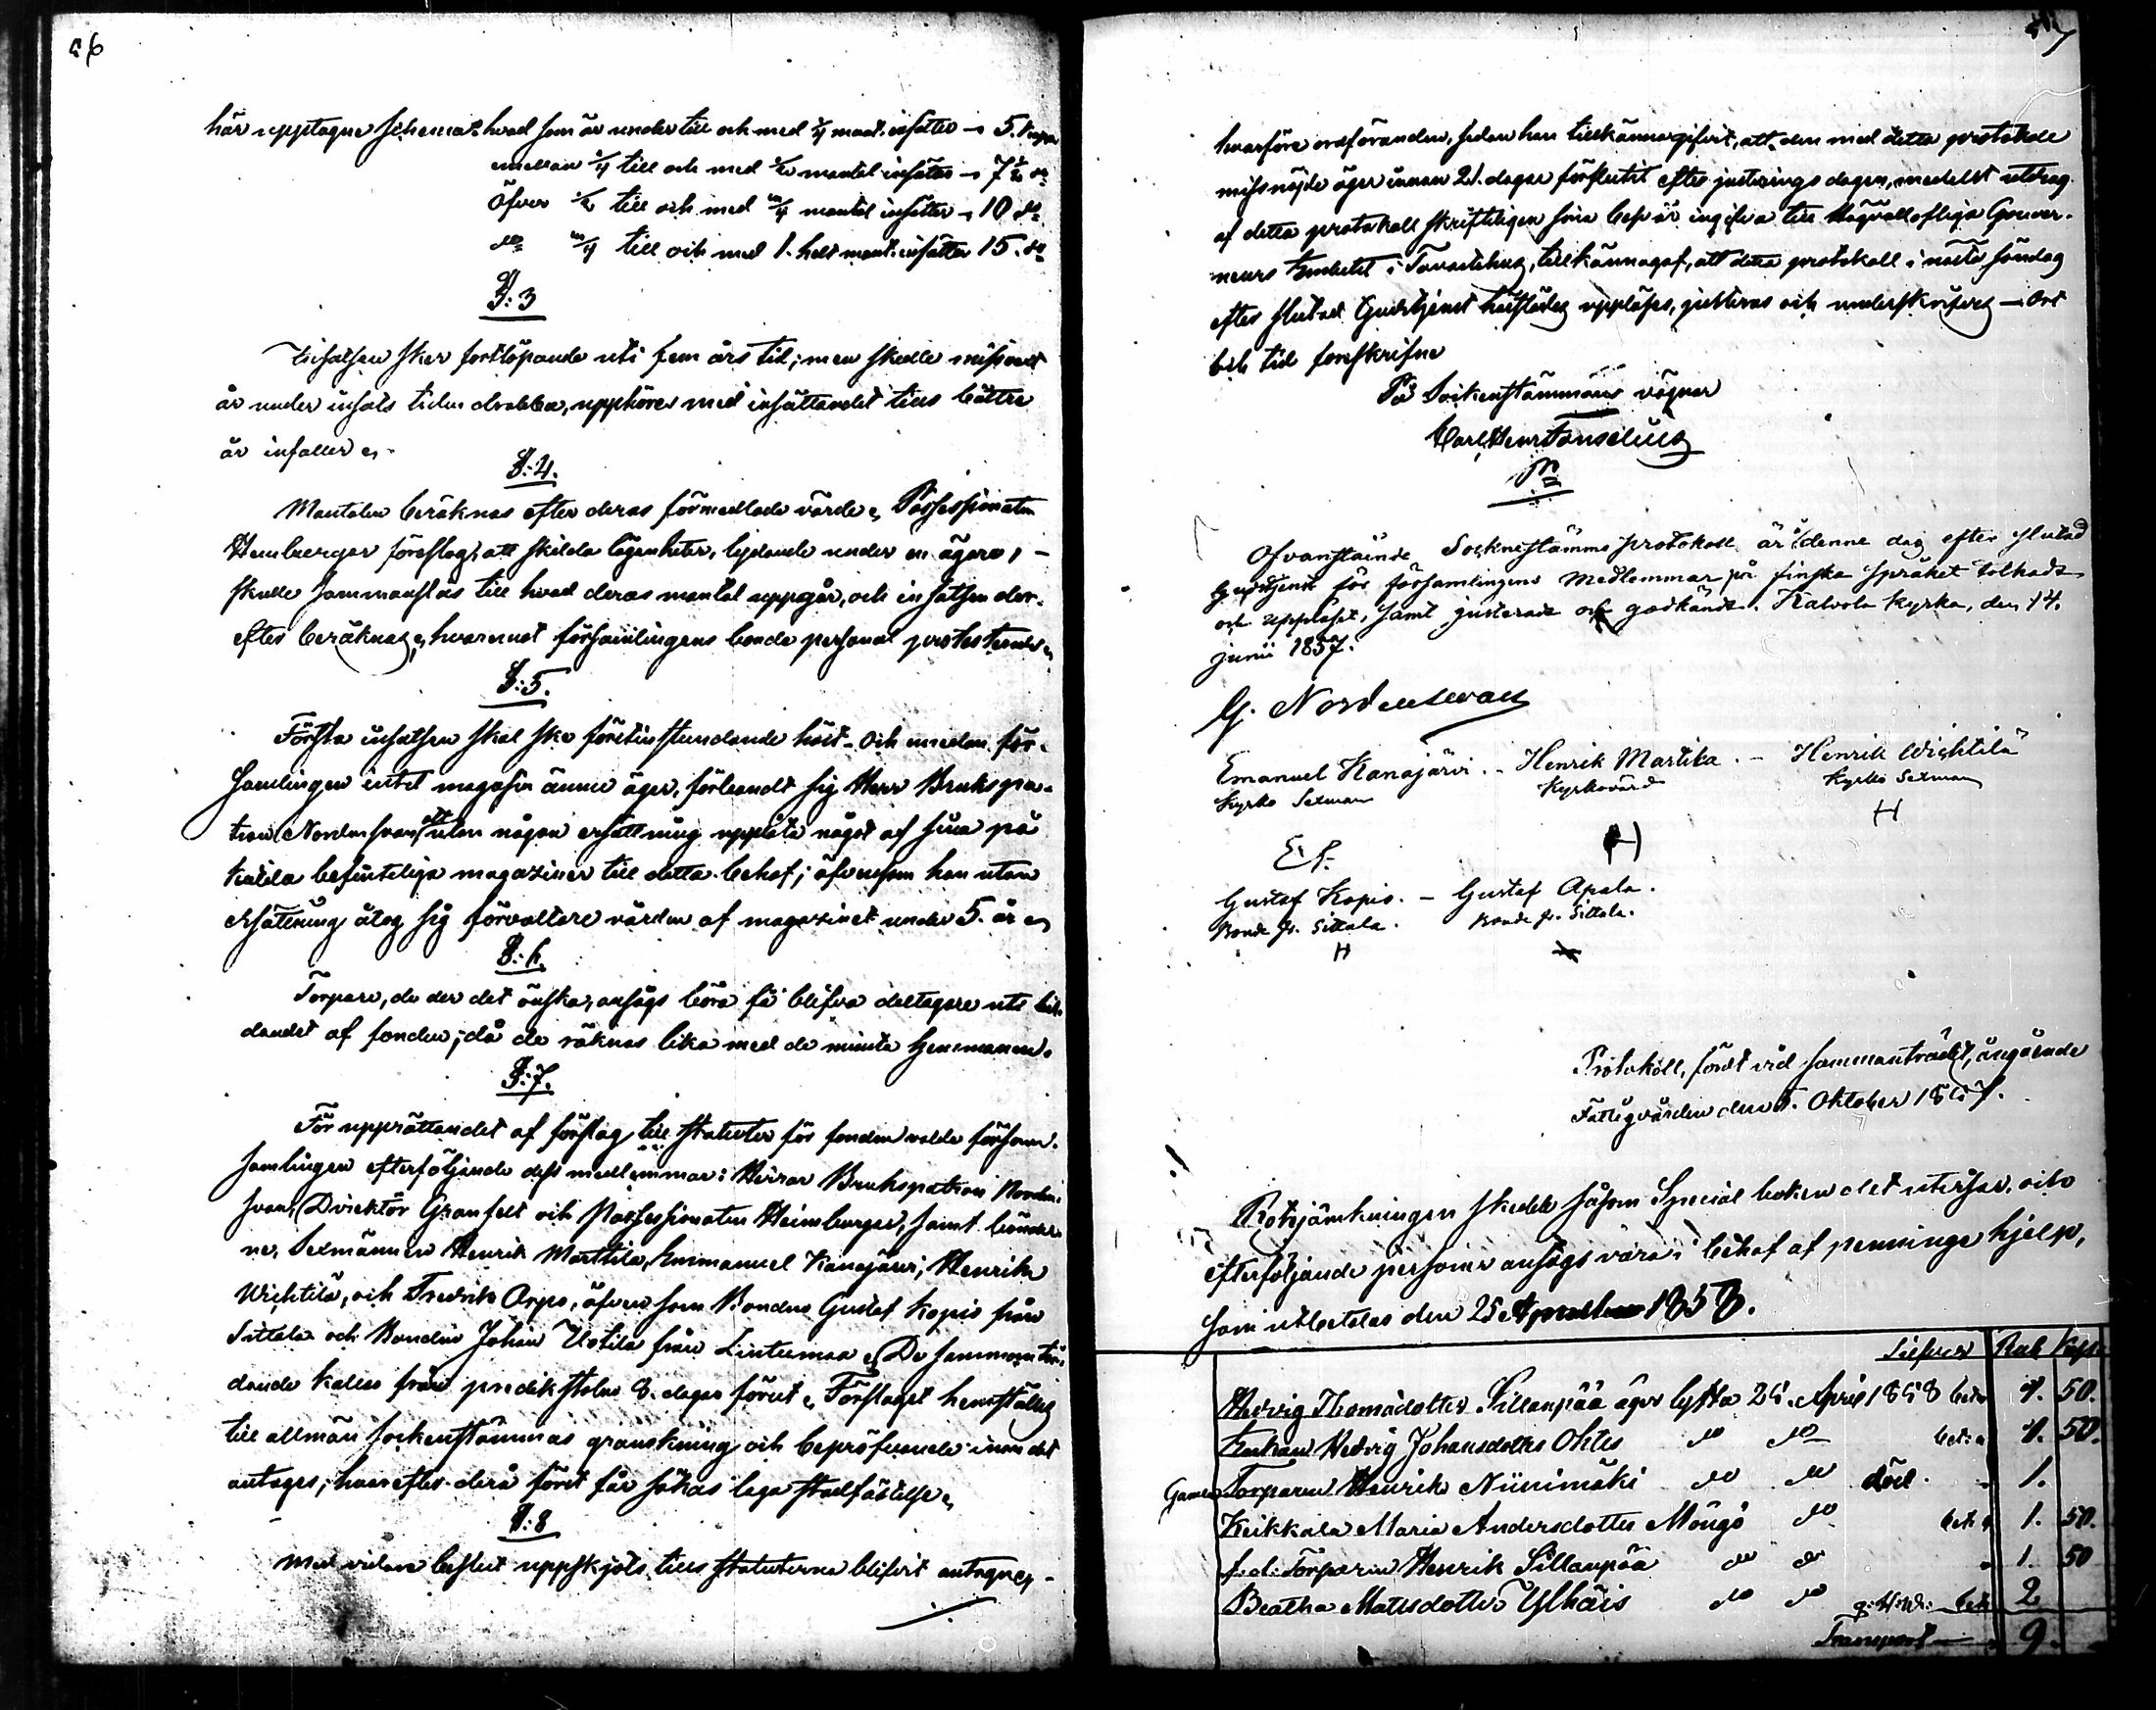 56
här upptagne schemat: hvad som är under till och med 1/4 mant. insätter 5. kapp
emellan 1/4 till och med 1/2 mantal insätter 7 1/2 do
Öfver 1/2 till och med 3/4 mantal insätter 10 do
do 3/4 till och med 1. helt mant. insätter 15. do
§: 3
Insatsen sker fortlöpande uti fem års tid; men skulle missvext
år under insats tiden drabba, upphöres med insättandet tills bättre
år infaller
§: 4.
Mantalen beräknas efter deras förmedlade värde, Possessionaten
Heimberger föreslog, att skilda lägenheter, lydande under en ägare,
skulle sammanslås till hvad deras mantal uppgår, och insatsen der-
efter beräknas, hvaremot församlingens bonde personal protesterade
§: 5.
Första insatsen skal ske förstinstundande höst. Och emedan för-
samlingen intet magasin ännu äger, förbandt sig Herr Brukspa-
tron Nordensvan att utan någon ersättning upplåta något af sina på
Kutila befintliga magaziner till detta behof; äfvensom han utan
ersättning åtog sig förvaltare vården af magazinet under 5. år
§: 6.
Torpare, de der det önska, ansågs böra få blifva deltagare uti bil-
dandet af fonden; då de räknas lika med de minsta hemmanen.
§: 7.
För upprättandet af förslag till statuter för fonden valde försam-
samlingen efterföljande dess medlemmar: Herrar Brukspatron Norden-
svan, Direktör Granfelt och Possessionaten Heimberger, samt bönder-
ne, Sexmännen Henrik Marttila, Emmanuel Kanajärvi, Henrik
Wichtilä, och Fredrik Arpo, äfven som Bonden Gustaf Kopis från
Sittala och Bonden Johan Uotila från Lintumaa. De samman trä-
dande kallas från predikstolen 8. dagar förut. Förslaget hemställes
till allmän sockenstämmas granskning och bepröfvande innan det
antages; hvarefter derå först får sökas laga stadfästelse
§: 8
Med vidare beslut uppskjöts tills statuterna blifvit antagne,
57
hvarföre ordföranden, sedan han tillkännagifvit, att den med detta protokoll
missnöjde äger innan 21. dagar förflutit efter justerings dagen, medelst utdrag
af detta protokoll skriftligen sina besvär ingifva till Högvällofliga Gouver-
neurs Embetet i Tavastehus, tillkännagaf, att detta protokoll i nästa söndag
efter slutad Gudstjenst härstädes uppläses, justeras och underskrifves. Ort
och tid föreskrifne
På Sockenstämmans vägnar
Carl Henr Fonselius
Ofvanstående Socknestämmo protokoll är denne dag efter slutad
Gudstjenst för församlingens Medlemmar på finska språket tolkadt
och uppläset, samt justeradt och godkändt. Kalvola Kyrka, den 14.
junii 1857.
G. Nordenswan
Emanuel Kanajärvi. - Henrik Martila. - Henrik Wichtilä
Kyrko Sexman Kyrkovärd Kyrko Sexman
H
Gustaf Kopis. - Gustaf Apala.
Bonde fr. Sittala. Bonde fr. Sittala.
H
Protokoll, fördt vid sammanträdet, angående
Fattigvården den 5. Oktober 1857.
Rotejämkningen skedde såsom Special boken det utvisar, och
efterföljande personer ansågs vara i behof af penninge hjelp,
som utbetalas den 25 April 1858.
Silfver Rub Kop
Hedvig Thomadotter Sillanpää äger lyfta 25. April 1858 bet 1. 50.
Enkan Hedvig Johansdotter Ohtes do do bet 1. 50.
Gamla Torparen Henrik Niinimäki do do död. 1.
Keikkala Maria Andersdotter Mongo do bet 1. 50.
f.d. Torparen Henrik Sillanpää do do 1. 50
Beatha Mattsdotter Ylhäis do do bet 2
Transport 9.